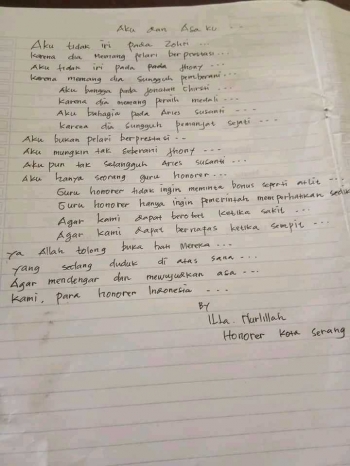 Aku dan Asa ku ...
Aku tidak iri pada Zohri ...
Karena dia memang pelari berprestasi ...
Aku tidak iri pada pada Jhony ...
Karena memang dia sungguh pemberani ...
Aku bangga pada Jonatan Christi ...
Karena dia memang peraih medali ...
Aku bahagia pada Aries susanti ...
Karena dia sungguh pemanjat sejati ...
Aku bukan pelari berprestasi ...
Aku mungkin tak seberani Jhony ...
Aku pun tak setangguh Aries Susanti ...
Aku hanya seorang guru honorer ...
Guru honorer tidak ingin meminta bonus seperti atlit ...
Guru honorer hanya ingin pemerintah memperhatikan
Agar kami dapat berobat ketika sakit ...
Agar kami dapat bernafas ketika sempit ...
Ya Allah tolong buka hati Mereka ...
yang sedang duduk di atas sana ...
Agar mendengar dan mewujudkan asa ...
Kami, para honorer Indonesia ...
By
Nurlillah
Honorer Kota Serang